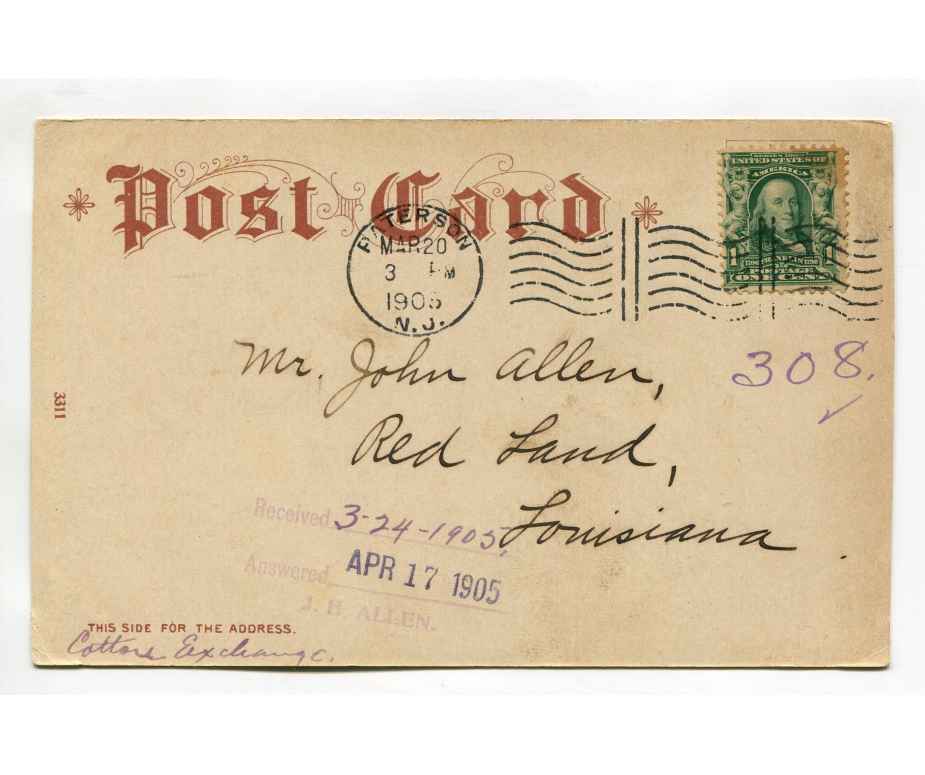 Post Card
UNITED STATES OF
AMERICA
FRANKLIN
POSTAGE
ONE CENT
PATERSON
MAR 20
3 PM
1905
N.J.
Mr. John Allen,
308.
Red Land,
Louisiana
3311
Received 3-24-1905,
Answered APR 17 1905
J. H. ALLEN.
THIS SIDE FOR THE ADDRESS.
Cotton Exchange.